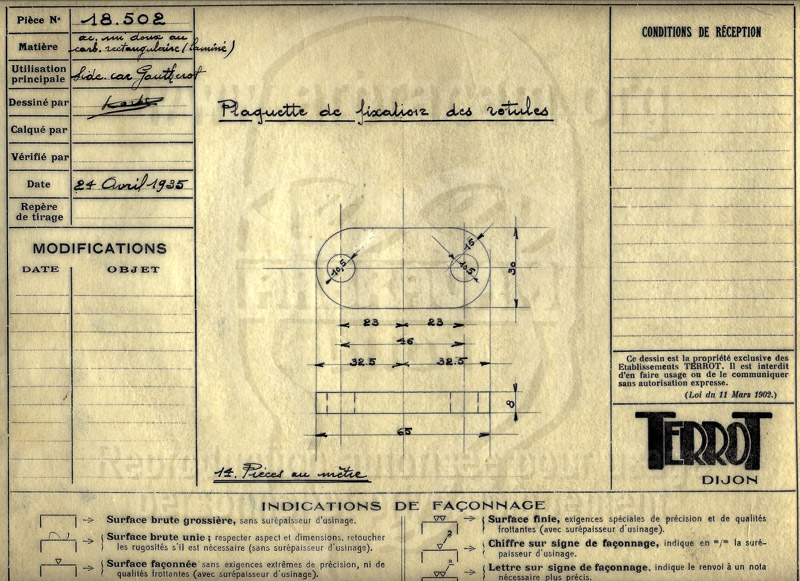 Pièce N° 18.502
Matière ac. mi doux au
carb. rectangulaire (laminé)
Utilisation
principale Side.car Gautherot
Dessiné par
Calqué par
Vérifié par
Date 24 Avril 1935
Repère
de tirage
MODIFICATIONS
DATE OBJET
Plaquette de fixation des rotules
10,5
15
10,5
30
23 23
46
32.5 32.5
8
65
14. Pièces au mètre
CONDITIONS DE RÉCEPTION
Ce dessin est la propriété exclusive des
Etablissements TERROT. Il est interdit
d'en faire usage ou de le communiquer
sans autorisation expresse.
(Loi du 11 Mars 1902.)
TERROT
DIJON
INDICATIONS DE FAÇONNAGE
Surface brute grossière, sans surépaisseur d'usinage.
Surface brute unie ; respecter aspect et dimensions, retoucher
les rugosités s'il est nécessaire (sans surépaisseur d'usinage).
Surface façonnée sans exigences extrêmes de précision, ni de
qualités frottantes (avec surépaisseur d'usinage).
Surface finie, exigences spéciales de précision et de qualités
frottantes (avec surépaisseur d'usinage).
2
Chiffre sur signe de façonnage, indique en m/m la suré-
paisseur d'usinage.
Lettre sur signe de façonnage, indique le renvoi à un nota
nécessaire plus précis.